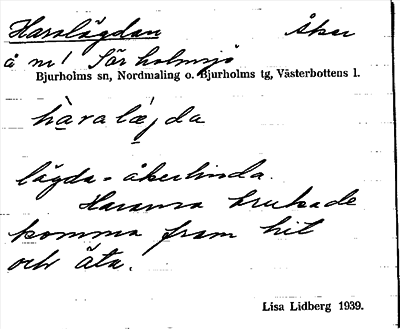 Haralägdan Åker
å n:o 1 Sör holmsjö
Bjurholms sn, Nordmaling o. Bjurholms tg, Västerbottens l.
hàralǽgda
lägda = åkerlinda.
Hararna brukade
komma fram hit
och äta.
Lisa Lidberg 1939.